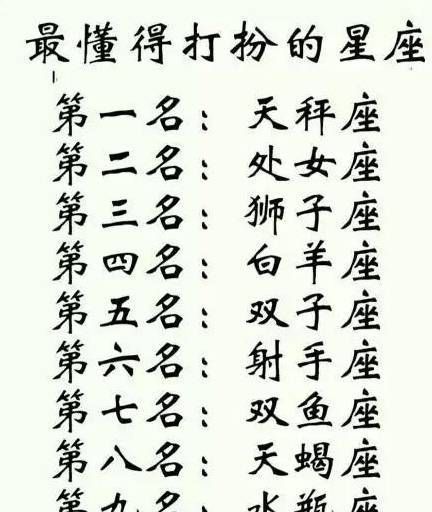 最懂得打扮的星座
第一名：天秤座
第二名：处女座
第三名：狮子座
第四名：白羊座
第五名：双子座
第六名：射手座
第七名：双鱼座
第八名：天蝎座
第九名：水瓶座